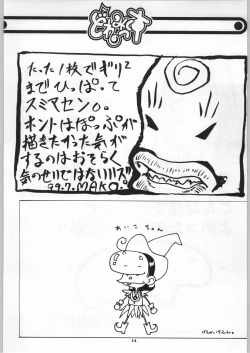 たった1枚でギリ2
までひっぱって
スミマセン。
ホントはぱっぷが
描きたかった気が
するのはおそらく
気のせいではないハズ
99.7.MAKO.
めいこちゃん
44